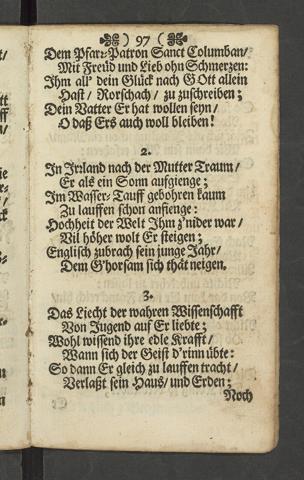 ) 97 (
Dem Pfarr-Patron Sanct Columban/
Mit Freüd und Lieb ohn Schmerzen:
Ihm all' dein Glück nach GOtt allein
Hast / Rorschach / zu zuschreiben;
Dein Vatter Er hat wollen seyn/
O daß Ers auch woll bleiben!
2.
In Irrland nach der Mutter Traum/
Er als ein Sonn aufgienge;
Im Wasser-Tauff gebohren kaum
Zu lauffen schon anfienge:
Hochheit der Welt Ihm z'nider war/
Vil höher wolt Er steigen;
Englisch zubrach sein junge Jahr/
Dem G'horsam sich thät neigen.
3.
Das Liecht der wahren Wissenschafft
Von Jugend auf Er liebte;
Wohl wissend ihre edle Krafft/
Wann sich der Geist d'rinn übte:
So dann Er gleich zu lauffen tracht/
Verlaßt sein Haus/ und Erden;
Noch